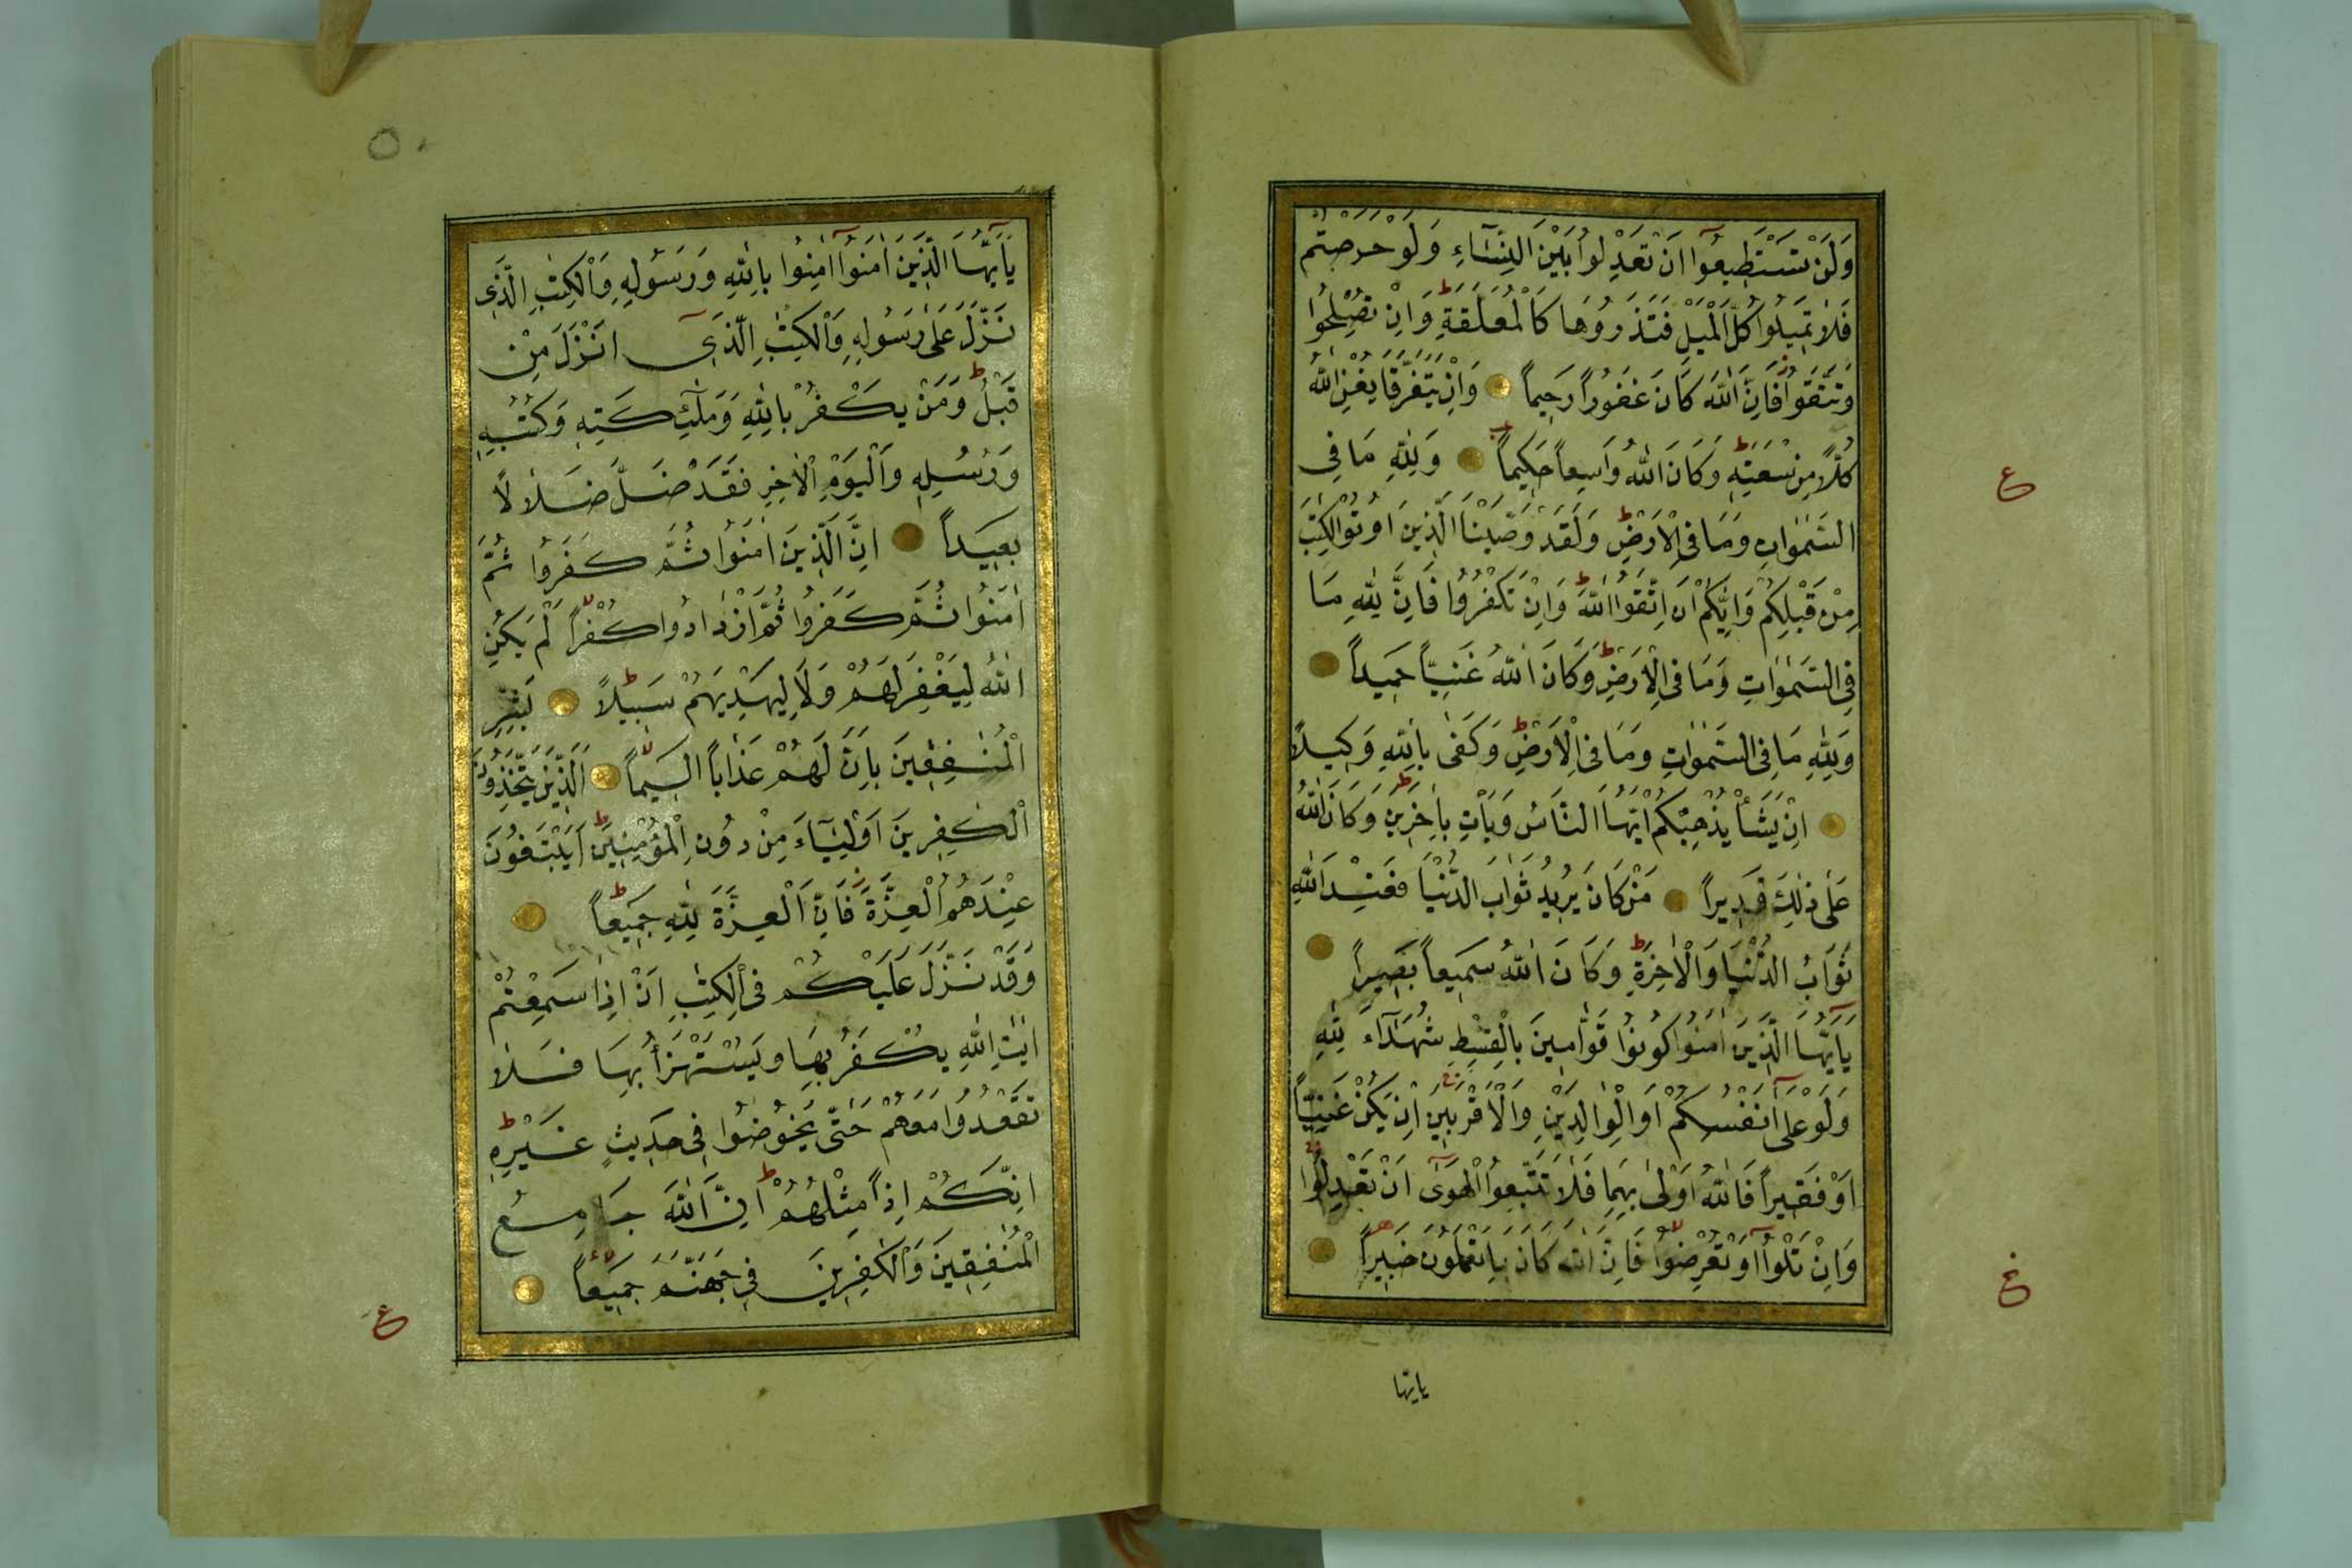 وَلَنْ تَسْتَطِيعُوٓا اَنْ تَعْدِلُوا بَيْنَ النِّسَٓاءِ وَلَوْ حَرَصْتُمْ
فَلَا تَمِيلُوا كُلَّ الْمَيْلِ فَتَذَرُوهَا كَالْمُعَلَّقَةِ ط وَاِنْ تُصْلِحُوا
وَتَتَّقُوا فَاِنَّ اللّٰهَ كَانَ غَفُوراً رَحِيماً وَاِنْ يَتَفَرَّقَا يُغْنِ اللّٰهُ
كُلًّا مِنْ سَعَتِهِ ط وَكَانَ اللّٰهُ وَاسِعاً حَكِيماً وَلِلّٰهِ مَا فِى
السَّمٰوَاتِ وَمَا فِى الْاَرْضِ ط وَلَقَدْ وَصَّيْنَا الَّذِينَ اُوتُوا الْكِتٰبَ
مِنْ قَبْلِكُمْ وَاِيَّاكُمْ اَنِ اتَّقُوا اللّٰهَ ط وَاِنْ تَكْفُرُوا فَاِنَّ لِلّٰهِ مَا
فِى السَّمٰوَاتِ وَمَا فِى الْاَرْضِ ط وَكَانَ اللّٰهُ غَنِيًّا حَمِيداً
وَلِلّٰهِ مَا فِى السَّمٰوَاتِ وَمَا فِى الْاَرْضِ ط وَكَفٰى بِاللّٰهِ وَكِيلاً
اِنْ يَشَأْ يُذْهِبْكُمْ اَيُّهَا النَّاسُ وَيَأْتِ بِاٰخَرِينَ ط وَكَانَ اللّٰهُ
عَلٰى ذٰلِكَ قَدِيراً مَنْ كَانَ يُرِيدُ ثَوَابَ الدُّنْيَا فَعِنْدَ اللّٰهِ
ثَوَابُ الدُّنْيَا وَالْاٰخِرَةِ ط وَكَانَ اللّٰهُ سَمِيعاً بَصِيراً
يَٓا اَيُّهَا الَّذِينَ اٰمَنُوا كُونُوا قَوَّامِينَ بِالْقِسْطِ شُهَدَٓاءَ لِلّٰهِ
وَلَوْ عَلٰٓى اَنْفُسِكُمْ اَوِ الْوَالِدَيْنِ وَالْاَقْرَبِينَ اِنْ يَكُنْ غَنِيًّا
اَوْ فَقِيراً فَاللّٰهُ اَوْلٰى بِهِمَا فَلَا تَتَّبِعُوا الْهَوٰٓى اَنْ تَعْدِلُوا
وَاِنْ تَلْوُٓا اَوْ تُعْرِضُوا فَاِنَّ اللّٰهَ كَانَ بِمَا تَعْمَلُونَ خَبِيراً
ع
ع
يايها
٥٠
يَٓا اَيُّهَا الَّذِينَ اٰمَنُٓوا اٰمِنُوا بِاللّٰهِ وَرَسُولِهِ وَالْكِتٰبِ الَّذِى
نَزَّلَ عَلٰى رَسُولِهِ وَالْكِتٰبِ الَّذِٓى اَنْزَلَ مِنْ
قَبْلُ ط وَمَنْ يَكْفُرْ بِاللّٰهِ وَمَلٰٓئِكَتِهِ وَكُتُبِهِ
وَرُسُلِهِ وَالْيَوْمِ الْاٰخِرِ فَقَدْ ضَلَّ ضَلَالًا
بَعِيداً اِنَّ الَّذِينَ اٰمَنُوا ثُمَّ كَفَرُوا ثُمَّ
اٰمَنُوا ثُمَّ كَفَرُوا ثُمَّ ازْدَادُوا كُفْراً لَمْ يَكُنِ
اللّٰهُ لِيَغْفِرَ لَهُمْ وَلَا لِيَهْدِيَهُمْ سَبِيلاً ط بَشِّرِ
الْمُنٰفِقِينَ بِاَنَّ لَهُمْ عَذَاباً اَلِيماً الَّذِينَ يَتَّخِذُونَ
الْكٰفِرِينَ اَوْلِيَٓاءَ مِنْ دُونِ الْمُؤْمِنِينَ ط اَيَبْتَغُونَ
عِنْدَهُمُ الْعِزَّةَ فَاِنَّ الْعِزَّةَ لِلّٰهِ جَمِيعاً ط
وَقَدْ نَزَّلَ عَلَيْكُمْ فِى الْكِتٰبِ اَنْ اِذَا سَمِعْتُمْ
اٰيٰتِ اللّٰهِ يُكْفَرُ بِهَا وَيُسْتَهْزَأُ بِهَا فَلَا
تَقْعُدُوا مَعَهُمْ حَتّٰى يَخُوضُوا فِى حَدِيثٍ غَيْرِهِ ط
اِنَّكُمْ اِذاً مِثْلُهُمْ ط اِنَّ اللّٰهَ جَامِعُ
الْمُنٰفِقِينَ وَالْكٰفِرِينَ فِى جَهَنَّمَ جَمِيعاً
ع